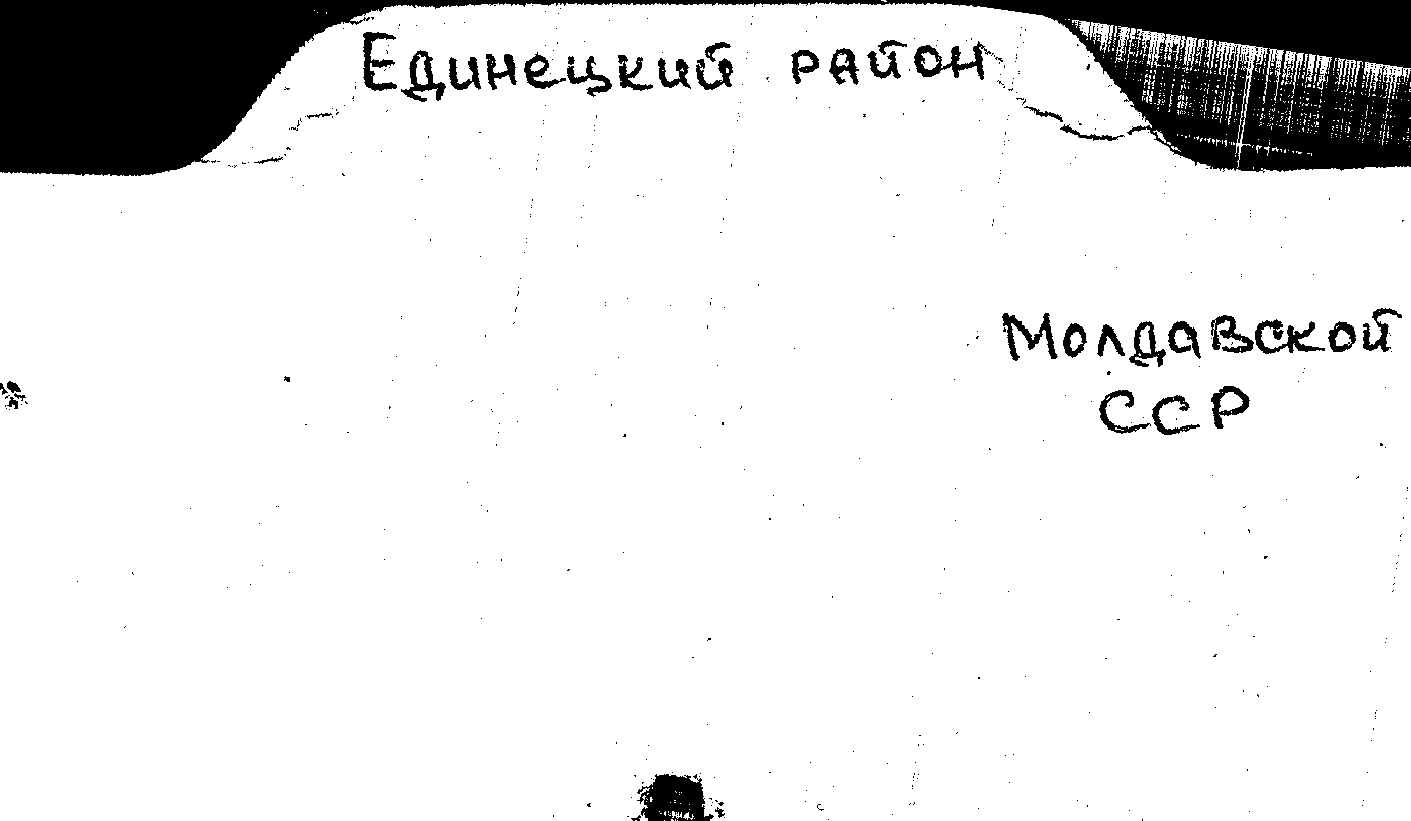 Единецкий район
Молдавской
ССР